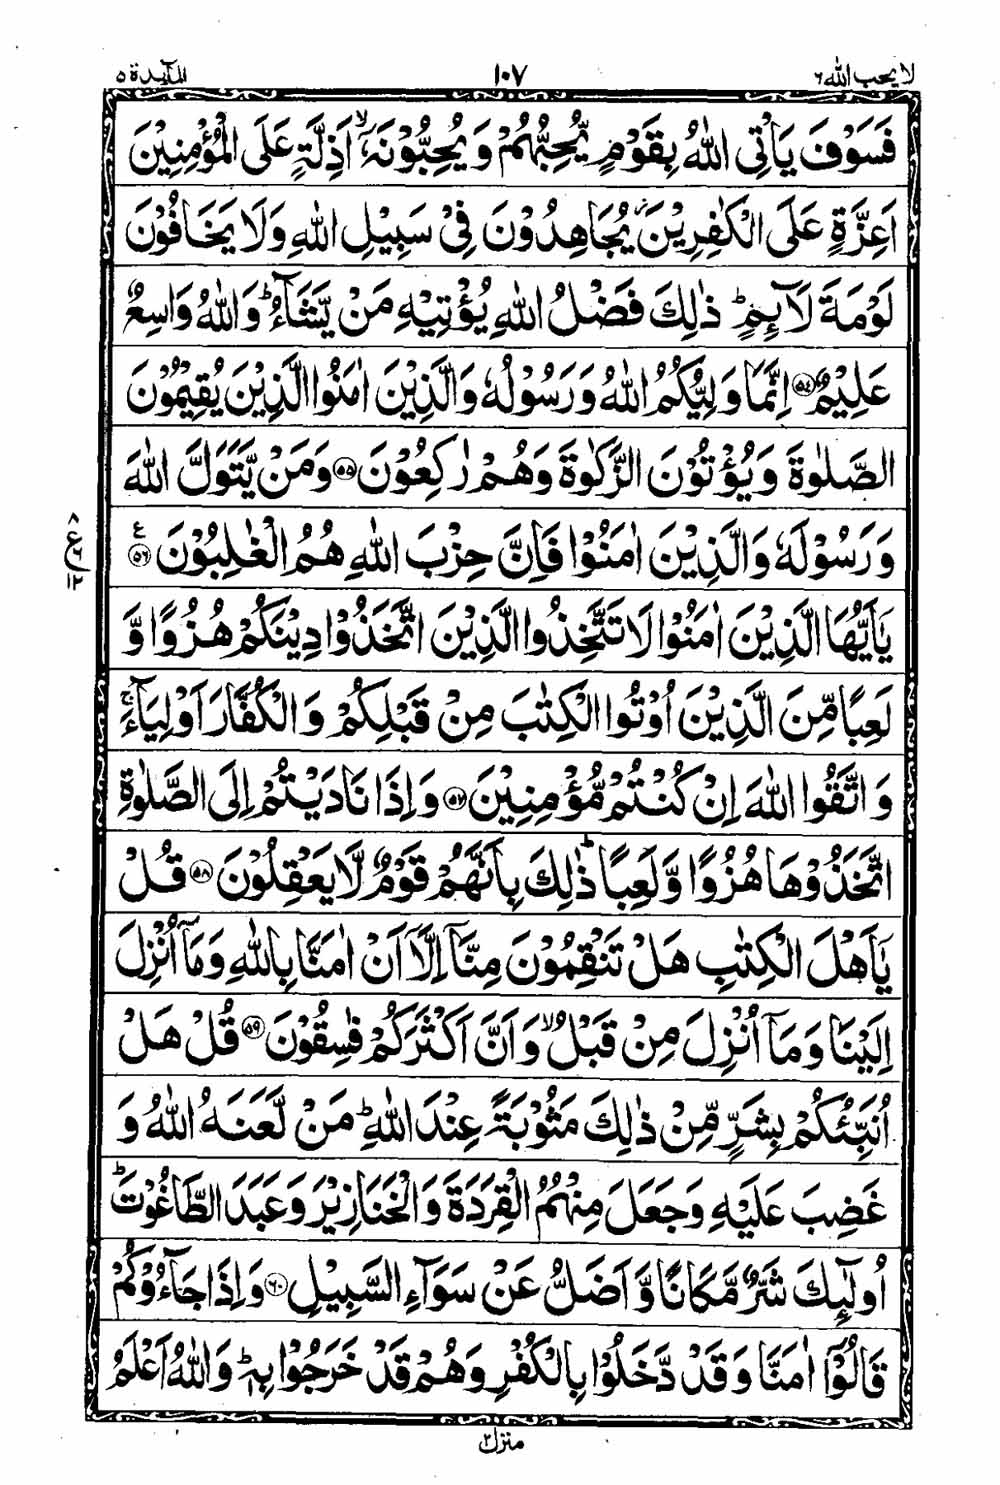 لا يحب الله ٦
١٠٧
المآئدة ٥
فَسَوْفَ يَاْتِى اللّٰهُ بِقَوْمٍ يُّحِبُّهُمْ وَيُحِبُّوْنَهٗۤ ۙ اَذِلَّةٍ عَلَى الْمُؤْمِنِيْنَ
اَعِزَّةٍ عَلَى الْكٰفِرِيْنَ ؗ يُجَاهِدُوْنَ فِىْ سَبِيْلِ اللّٰهِ وَلَا يَخَافُوْنَ
لَوْمَةَ لَآئِمٍ ؕ ذٰلِكَ فَضْلُ اللّٰهِ يُؤْتِيْهِ مَنْ يَّشَآءُ ؕ وَاللّٰهُ وَاسِعٌ
عَلِيْمٌ ﴿۵۴﴾ اِنَّمَا وَلِيُّكُمُ اللّٰهُ وَرَسُوْلُهٗ وَالَّذِيْنَ اٰمَنُوا الَّذِيْنَ يُقِيْمُوْنَ
الصَّلٰوةَ وَيُؤْتُوْنَ الزَّكٰوةَ وَهُمْ رٰكِعُوْنَ ﴿۵۵﴾ وَمَنْ يَّتَوَلَّ اللّٰهَ
وَرَسُوْلَهٗ وَالَّذِيْنَ اٰمَنُوْا فَاِنَّ حِزْبَ اللّٰهِ هُمُ الْغٰلِبُوْنَ ﴿۵۶﴾ ع
٨ ع ٦ ١٢
يٰۤاَيُّهَا الَّذِيْنَ اٰمَنُوْا لَا تَتَّخِذُوا الَّذِيْنَ اتَّخَذُوْا دِيْنَكُمْ هُزُوًا وَّ
لَعِبًا مِّنَ الَّذِيْنَ اُوْتُوا الْكِتٰبَ مِنْ قَبْلِكُمْ وَالْكُفَّارَ اَوْلِيَآءَ ۚ
وَاتَّقُوا اللّٰهَ اِنْ كُنْتُمْ مُّؤْمِنِيْنَ ﴿۵۷﴾ وَاِذَا نَادَيْتُمْ اِلَى الصَّلٰوةِ
اتَّخَذُوْهَا هُزُوًا وَّلَعِبًا ؕ ذٰلِكَ بِاَنَّهُمْ قَوْمٌ لَّا يَعْقِلُوْنَ ﴿۵۸﴾ قُلْ
يٰۤاَهْلَ الْكِتٰبِ هَلْ تَنْقِمُوْنَ مِنَّاۤ اِلَّاۤ اَنْ اٰمَنَّا بِاللّٰهِ وَمَاۤ اُنْزِلَ
اِلَيْنَا وَمَاۤ اُنْزِلَ مِنْ قَبْلُ ۙ وَاَنَّ اَكْثَرَكُمْ فٰسِقُوْنَ ﴿۵۹﴾ قُلْ هَلْ
اُنَبِّئُكُمْ بِشَرٍّ مِّنْ ذٰلِكَ مَثُوْبَةً عِنْدَ اللّٰهِ ؕ مَنْ لَّعَنَهُ اللّٰهُ وَ
غَضِبَ عَلَيْهِ وَجَعَلَ مِنْهُمُ الْقِرَدَةَ وَالْخَنَازِيْرَ وَعَبَدَ الطَّاغُوْتَ ؕ
اُولٰٓئِكَ شَرٌّ مَّكَانًا وَّاَضَلُّ عَنْ سَوَآءِ السَّبِيْلِ ﴿۶۰﴾ وَاِذَا جَآءُوْكُمْ
قَالُوْۤا اٰمَنَّا وَقَدْ دَّخَلُوْا بِالْكُفْرِ وَهُمْ قَدْ خَرَجُوْا بِهٖ ؕ وَاللّٰهُ اَعْلَمُ
منزل ٢